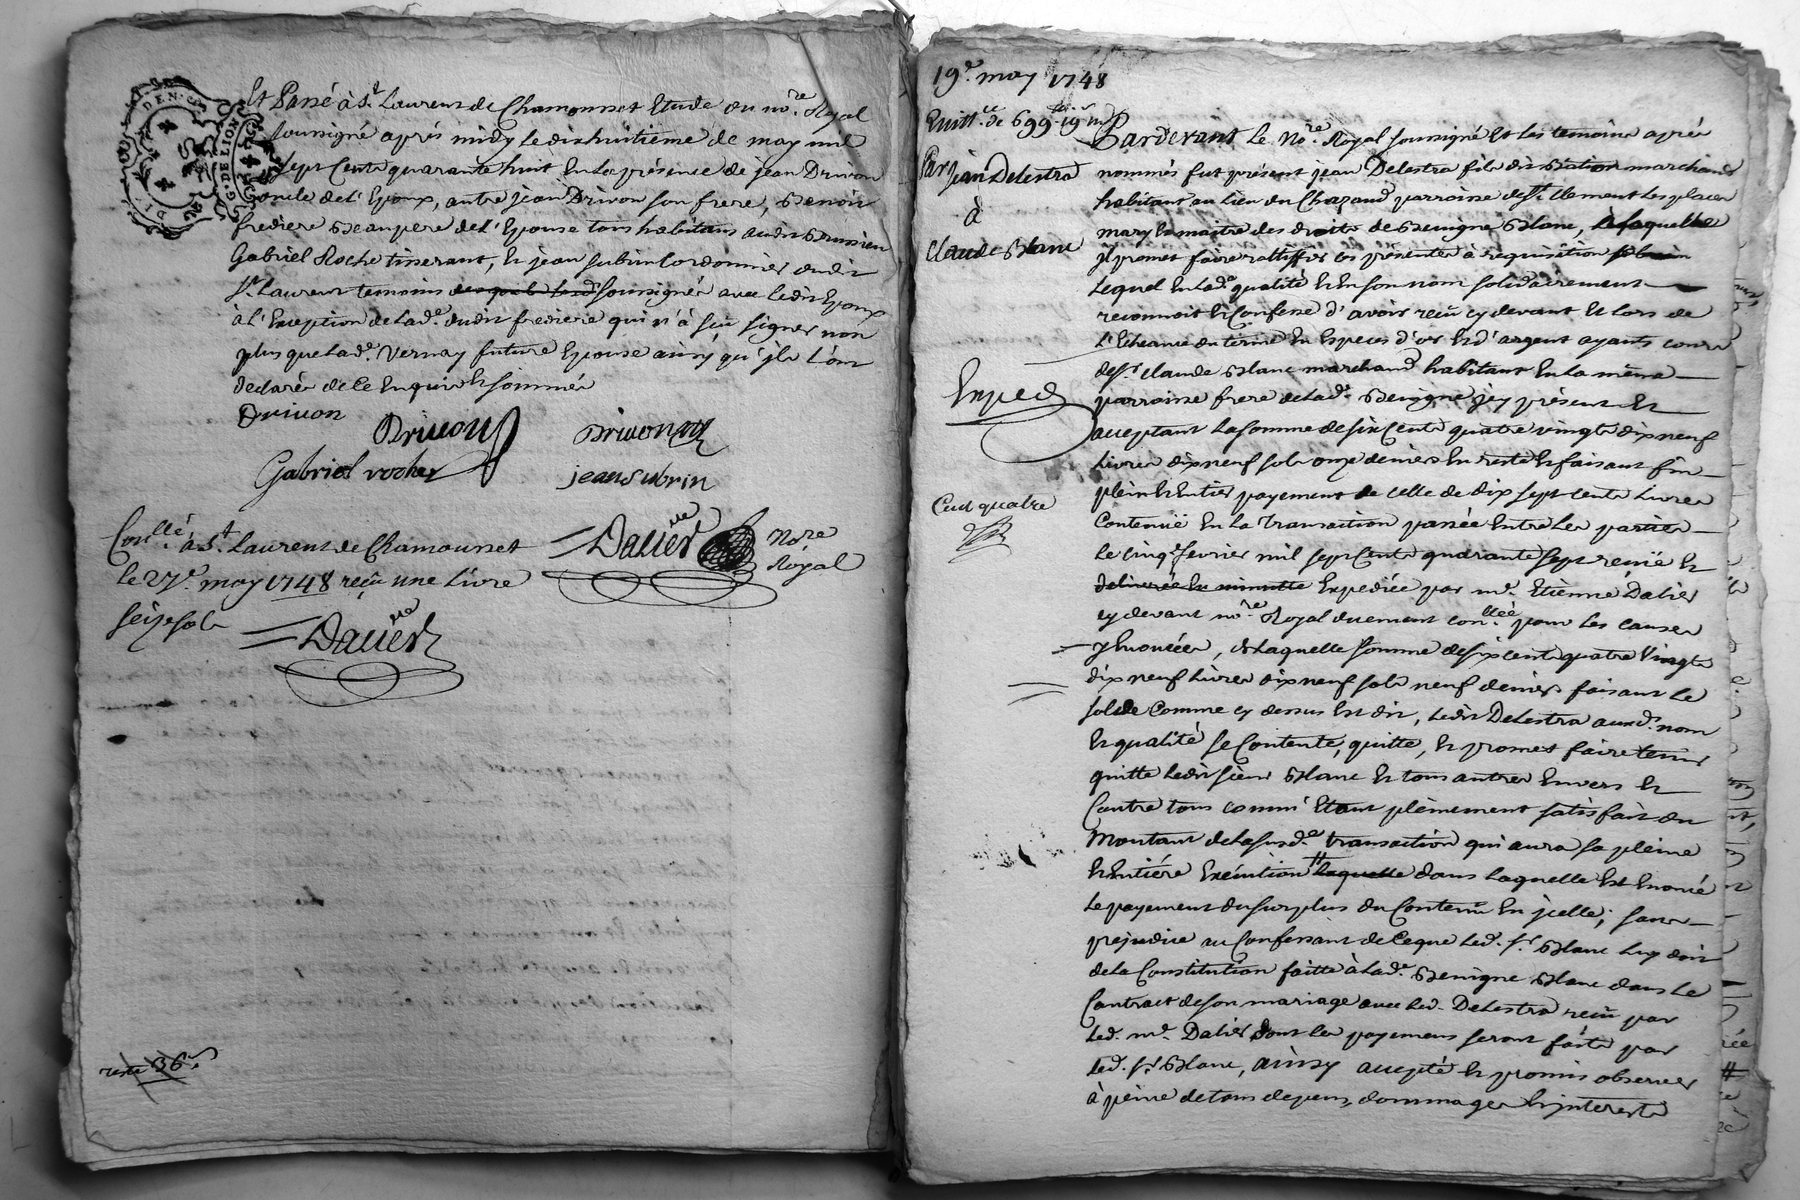 DEN. ce
G. DE LION
Et Passé à St. Laurent de Chamousset Etude du no.re Royal
soussigné après midy le dixhuitième de may mil
sept cents quarante huit En la présence de jean Drivon
oncle de l'Epoux, autre jean Drivon son frere, Benoit
fredière Beaupere de l'Epouse tous habitans audit Brussieu
Gabriel Roche tisserant, Et jean subrin Cordonnier dudit
St. Laurent temoins soussignés avec ledit Epoux
à l'Exception de lad.e dudit fredière qui n'à sçu signer non
plus que lad.e Vernay future Epouse ainsy qu'jls l'ont
declarés de ce Enquis Et sommés
Drivon
Drivon Drivon
Gabriel roche jean subrin
Con.llé à St. Laurent de Chamousset
le 27e. may 1748 reçu une Livre
seize sols
Dalier Nore
Royal
Dalier
reste 36 s
19e. may 1748
Quitt.ce de 699 tt. 19 s
Par jean Delestra
à
Claude Blanc
Exped
Cent quatre
Pardevant Le No.re Royal soussigné Et les temoins après
nommés fut présent jean Delestra fils dit Bation marchand
habitant au Lieu du Chazaud parroisse de St. Clement les places
mary Et maitre des droits de Benigne Blanc, Laquelle
Jl promet faire rattiffier les présentes à requisition
Lequel En lad.e qualité Et En son nom solidairement
reconnoit Et Confesse d'avoir reçu cy devant Et lors de
L'Echeance du terme En Especes d'or Et d'argent ayants cours
de Sr. Claude Blanc marchand habitant En la même
parroisse frere de lad.e Benigne jcy présent Et
acceptant La somme de six Cents quatre vingts dix neuf
Livres dix neuf sols onze deniers En reste Et faisant fin
plein Et Entier payement de celle de dix sept cents Livres
Contenuë En La transaction passée Entre Les parties
Le cinq.e fevrier mil sept Cents quarante sept reçuë Et
delivrée En minutte Expediée par m.e Etienne Dalier
cy devant no.re Royal duement con.llée pour Les causes
y Enoncées, de Laquelle somme de six cents quatre Vingts
dix neuf Livres dix neuf sols neuf deniers faisant Le
solde Comme cy dessus Est dit, Ledit Delestra ausd. nom
Et qualité se Contente, quitte, Et promet faire tenir
quitte Ledit sieur Blanc Et tous autres Envers Et
Contre tous comm' Etant pleinement satisfait du
Montant de la susd.e transaction qui aura sa pleine
Et Entière Exécution # Laquelle dans Laquelle Est Enoncé
Le payement du surplus du Contenu En jcelle; sans
préjudice au Confessant de Ce que Led. Sr. Blanc Luy doit
de La Constitution faitte à Lad.e Benigne Blanc dans Le
Contract de son mariage avec Led. Delestra reçu par
Led. m.e Dalier dont Les payements seront faits par
Led. Sr. Blanc, ainsy accepté Et promis observer
à peine de tous depens, dommages Et jnterests